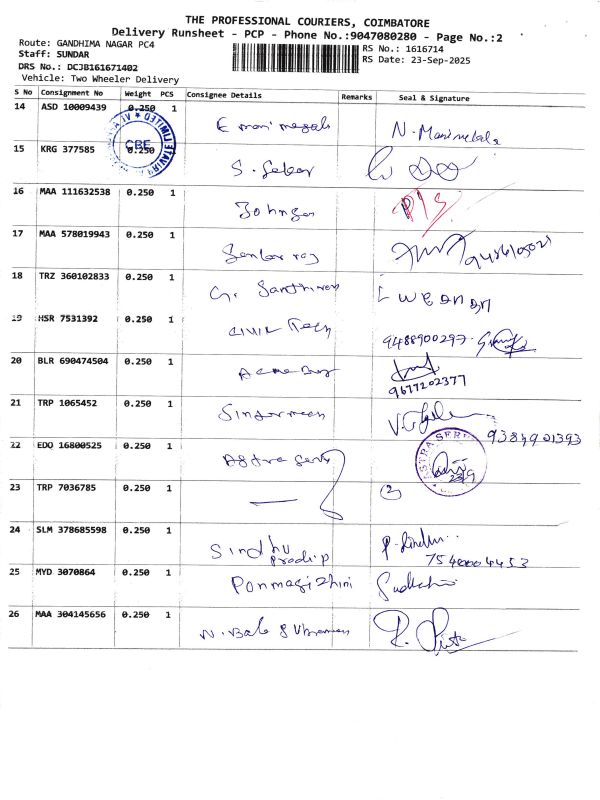 THE PROFESSIONAL COURIERS, COIMBATORE
Delivery Runsheet - PCP - Phone No.:9047080280 - Page No.:2
Route: GANDHIMA NAGAR PC4
RS No.: 1616714
Staff: SUNDAR
RS Date: 23-Sep-2025
DRS No.: DCJB161671402
Vehicle: Two Wheeler Delivery
S No Consignment No Weight PCS Consignee Details Remarks Seal & Signature
14 ASD 10009439 0.250 1
N. Manimekala
CBE
15 KRG 377585 0.250 S. Sekar
16 MAA 111632538 0.250 1 Johnson
17 MAA 578019943 0.250 1
18 TRZ 360102833 0.250 1
19 HSR 7531392 0.250 1 Civil Tech
9488900297
20 BLR 690474504 0.250 1
9677202377
21 TRP 1065452 0.250 1
9384901393
22 EDQ 16800525 0.250 1 Astra
23/9
23 TRP 7036785 0.250 1 — 2
24 SLM 378685598 0.250 1 Sindhu
Pradip
7540004453
25 MYD 3070864 0.250 1 Ponmagizhini
26 MAA 304145656 0.250 1 N. Bala